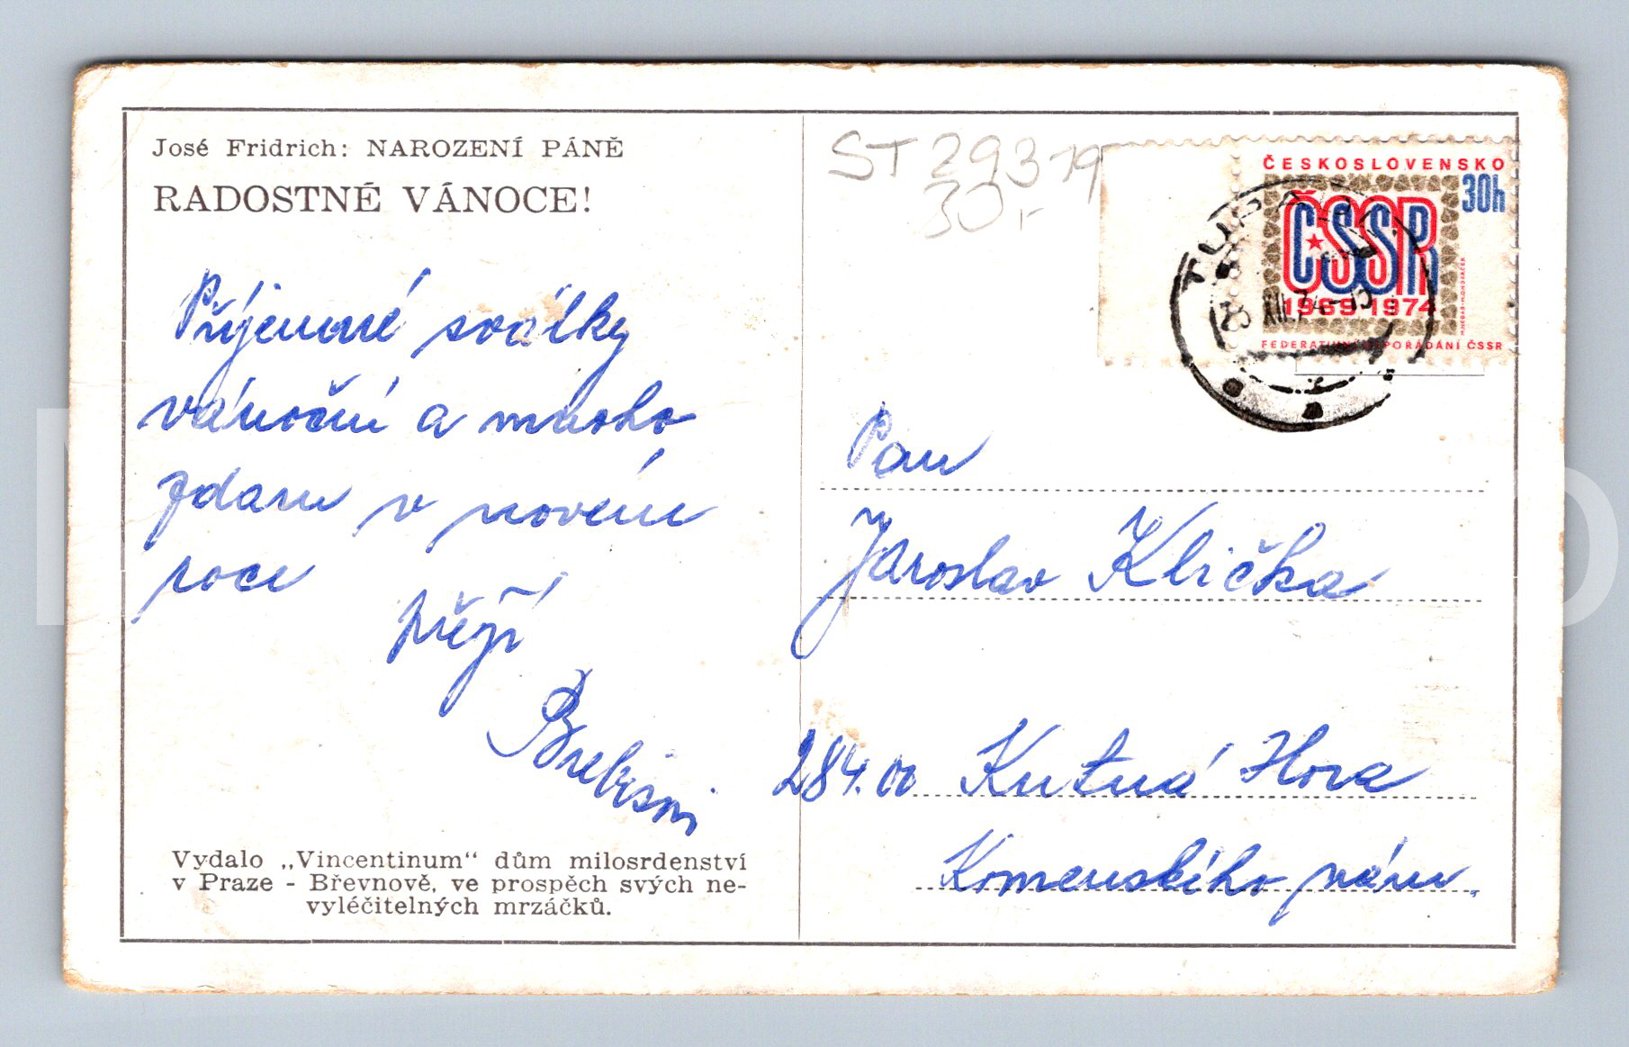 José Fridrich: NAROZENÍ PÁNĚ
RADOSTNÉ VÁNOCE!
Příjemné svátky
vánoční a mnoho
zdaru v novém
roce
přejí
Vydalo „Vincentinum“ dům milosrdenství
v Praze - Břevnově, ve prospěch svých ne-
vyléčitelných mrzáčků.
ST 29379
30,-
ČESKOSLOVENSKO
30h
ČSSR
1969-1974
FEDERATIVNÍ USPOŘÁDÁNÍ ČSSR
Pan
Jaroslav Klička
284.00 Kutná Hora
Komenského nám.